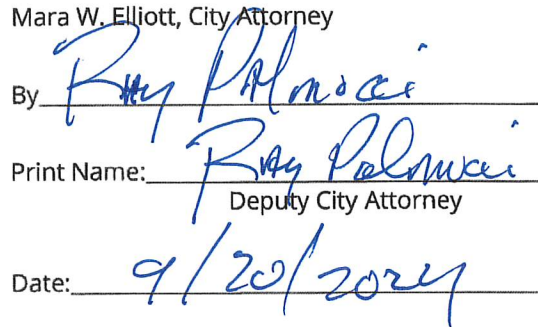 Mara W. Elliott, City Attorney
By Ray Palmucci
Print Name: Ray Palmucci
Deputy City Attorney
Date: 9/20/2024